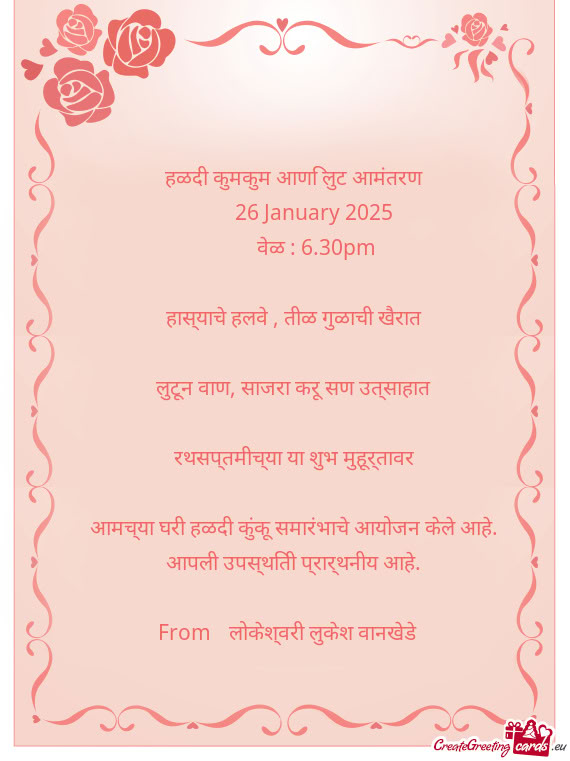 हळदी कुमकुम आणि लुट आमंतरण
26 January 2025
वेळ : 6.30pm
हास्‌याचे हलवे , तीळ गुळाची खैरात
लुटून वाण, साजरा करू सण उत्‌साहात
रथसप्‌तमीच्‌या या शुभ मुहूर्‌तावर
आमच्‌या घरी हळदी कुंकू समारंभाचे आयोजन केले आहे.
आपली उपस्‌थिती प्‌रार्‌थनीय आहे.
From लोकेश्‌वरी लुकेश वानखेडे
CreateGreeting cards .eu